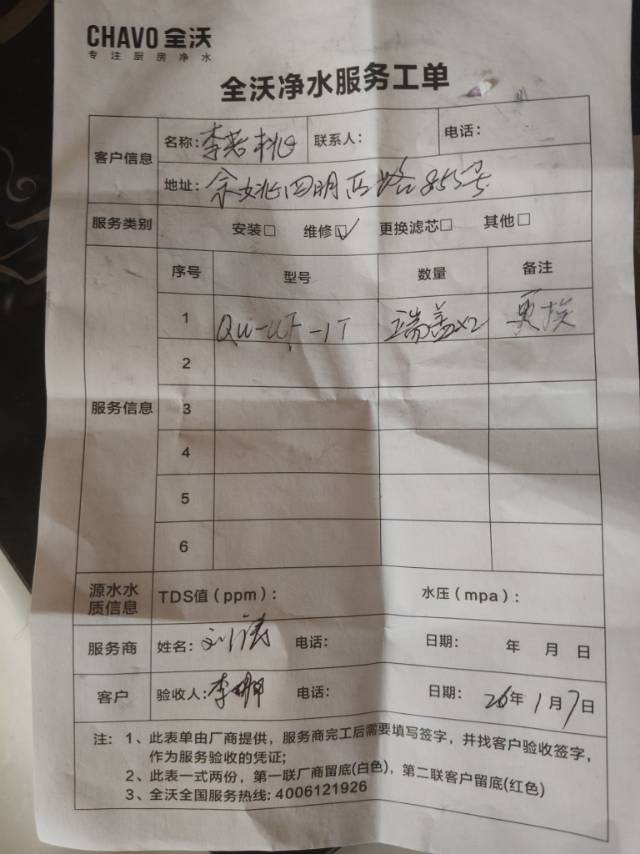 CHAVO 全沃
专注厨房净水
全沃净水服务工单
客户信息 名称: 李 桃 联系人: 电话:
地址: 余姚四明西路853号
服务类别 安装□ 维修☑ 更换滤芯□ 其他□
服务信息 序号 型号 数量 备注
1 QW-UF-1T 端盖x2 更换
2
3
4
5
6
源水水质信息 TDS值(ppm): 水压(mpa):
服务商 姓名: 刘涛 电话: 日期: 年 月 日
客户 验收人: 李 电话: 日期: 26年1月7日
注: 1、此表单由厂商提供，服务商完工后需要填写签字，并找客户验收签字，
作为服务验收的凭证;
2、此表一式两份，第一联厂商留底(白色)，第二联客户留底(红色)
3、全沃全国服务热线: 4006121926